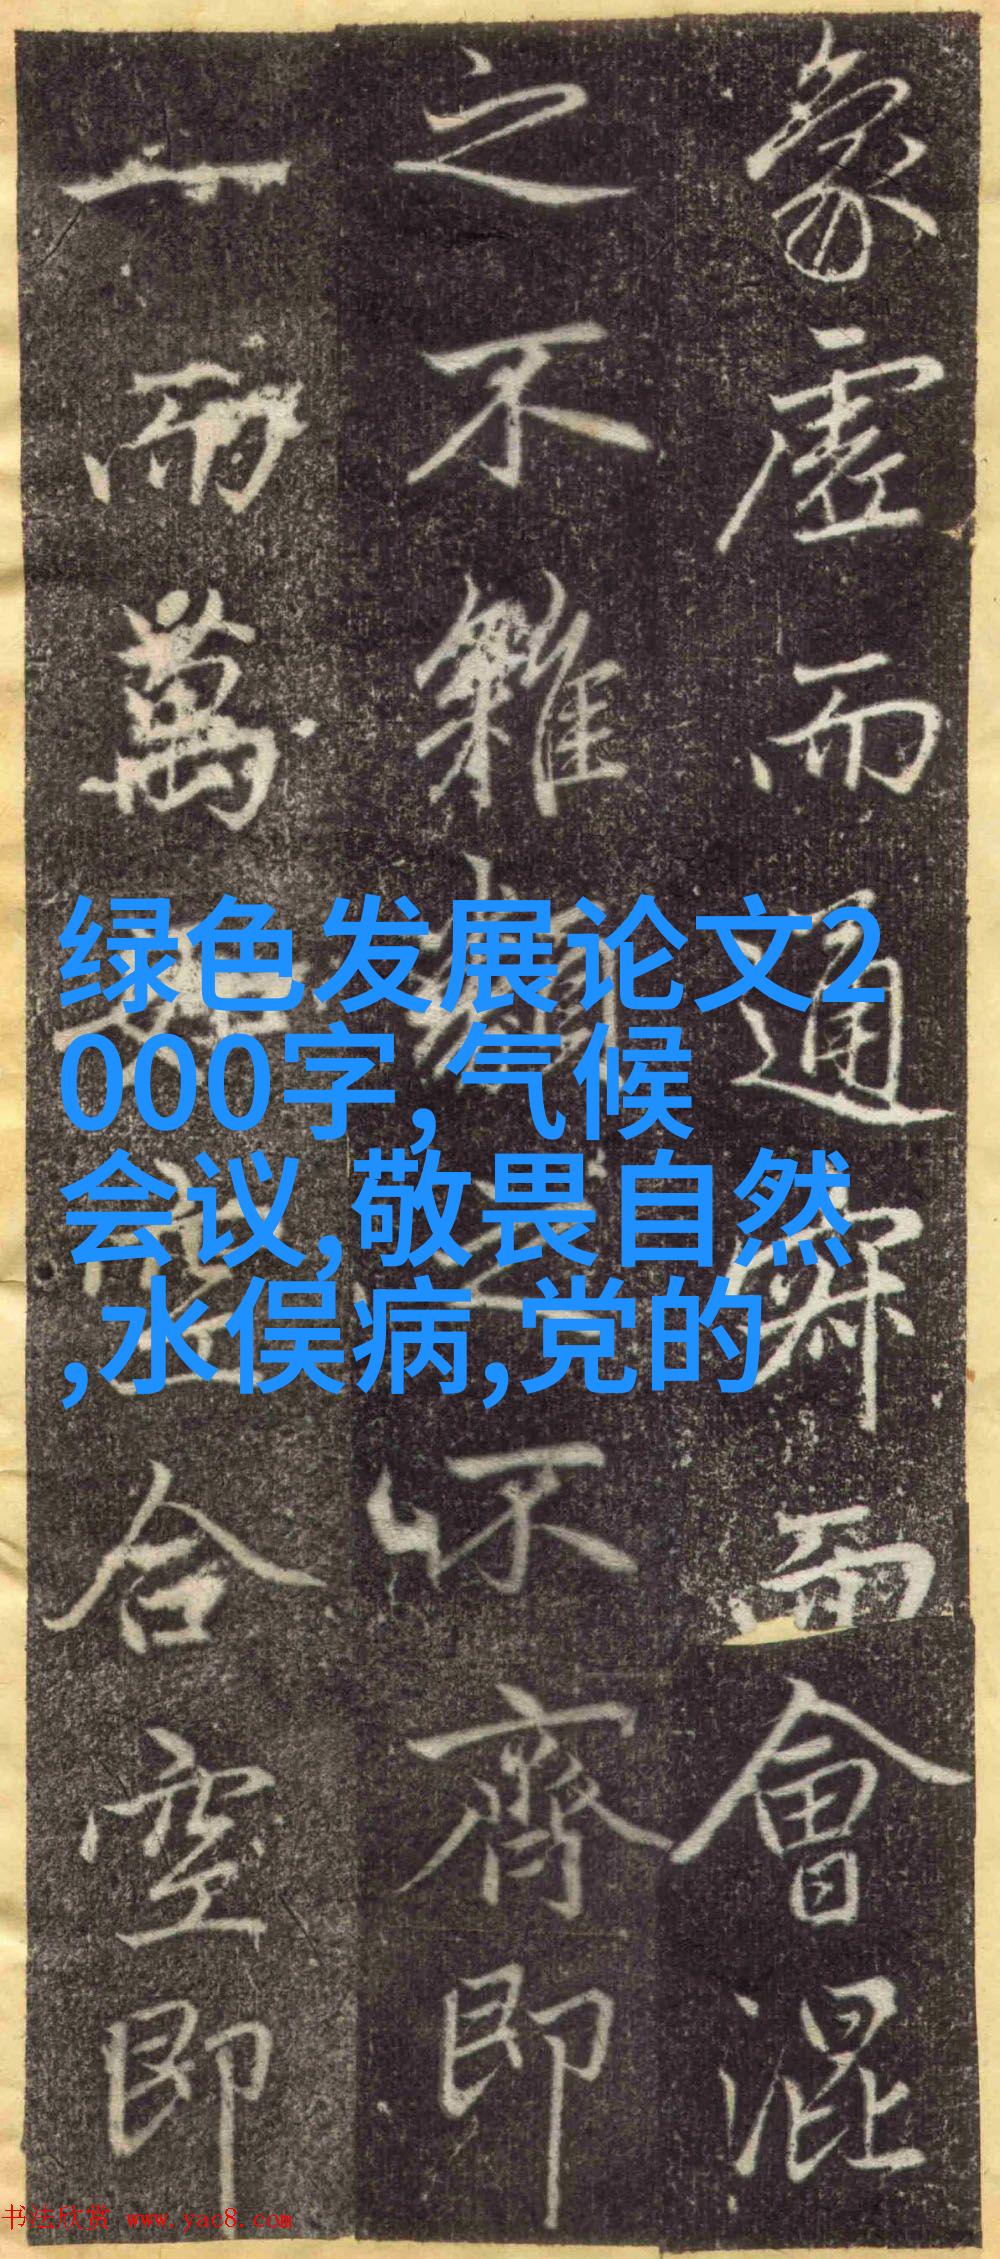 象虛而通而會混
之不雜類之不齊即
一而萬合空即
绿色发展论文2
000字, 气候
会议,敬畏自然
,水俣病,党的
书法欣赏 www.yac8.com